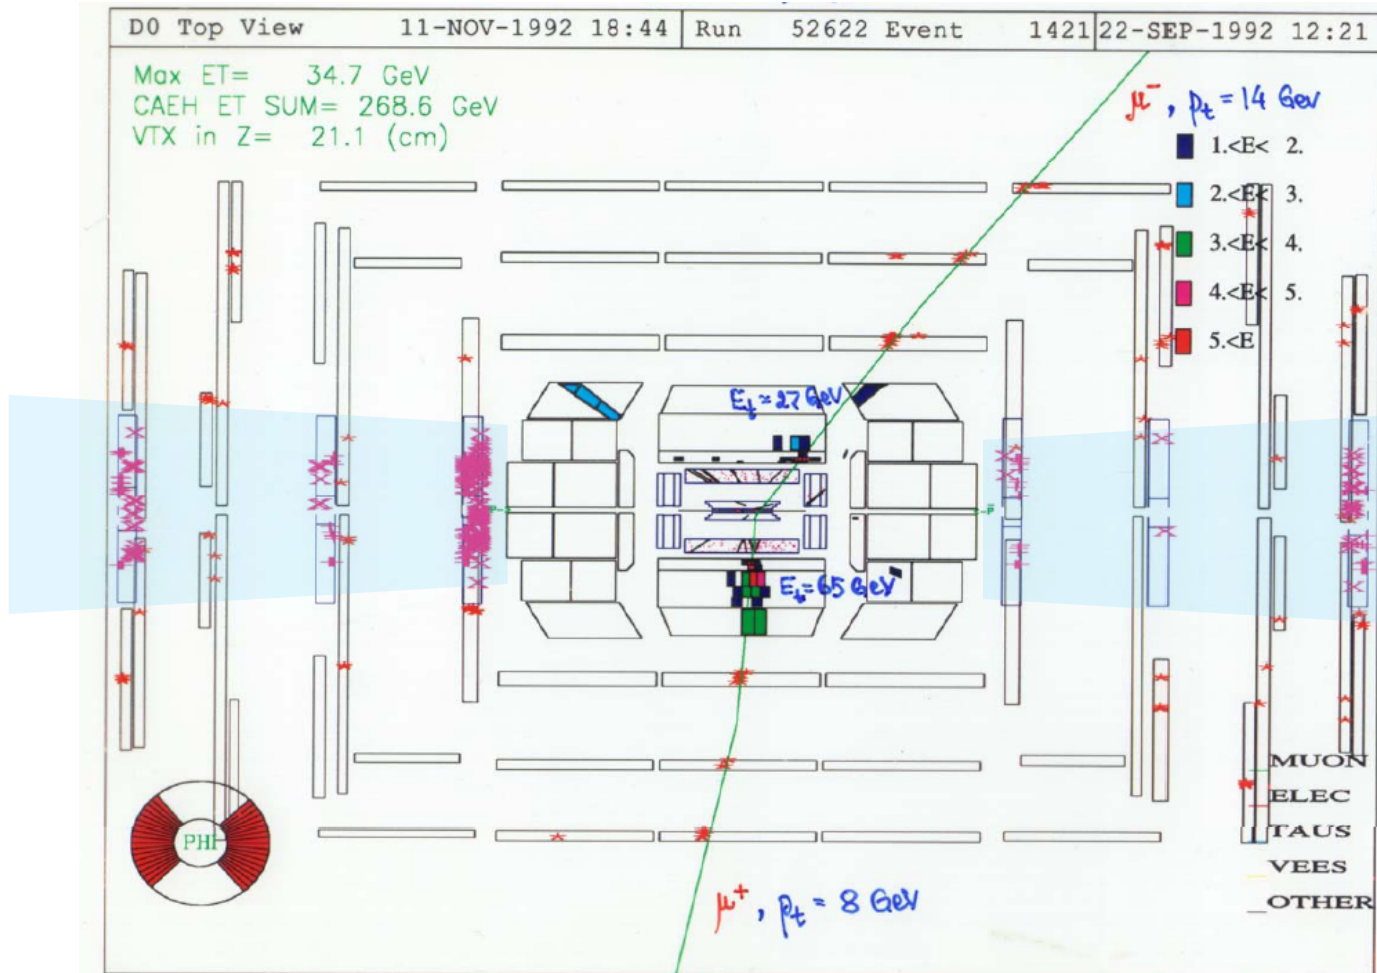 D0 Top View 11-NOV-1992 18:44 Run 52622 Event 1421 22-SEP-1992 12:21
Max ET= 34.7 GeV
CAEH ET SUM= 268.6 GeV
VTX in Z= 21.1 (cm)
μ⁻, pt = 14 GeV
1.<E< 2.
2.<E< 3.
3.<E< 4.
4.<E< 5.
5.<E
Et = 27 GeV
Et = 65 GeV
PHI
MUON
ELEC
TAUS
VEES
OTHER
μ⁺, pt = 8 GeV